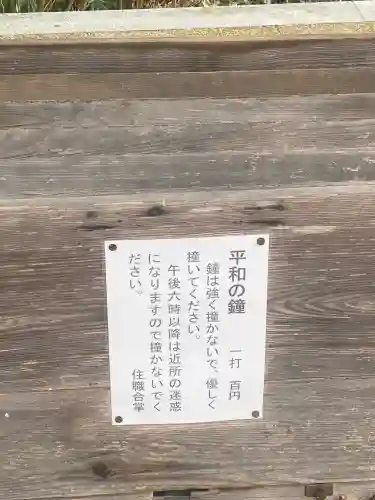 平和の鐘　一打　百円
鐘は強く撞かないで、優しく
撞いてください。
午後六時以降は近所の迷惑
になりますので撞かないでく
ださい。
住職合掌